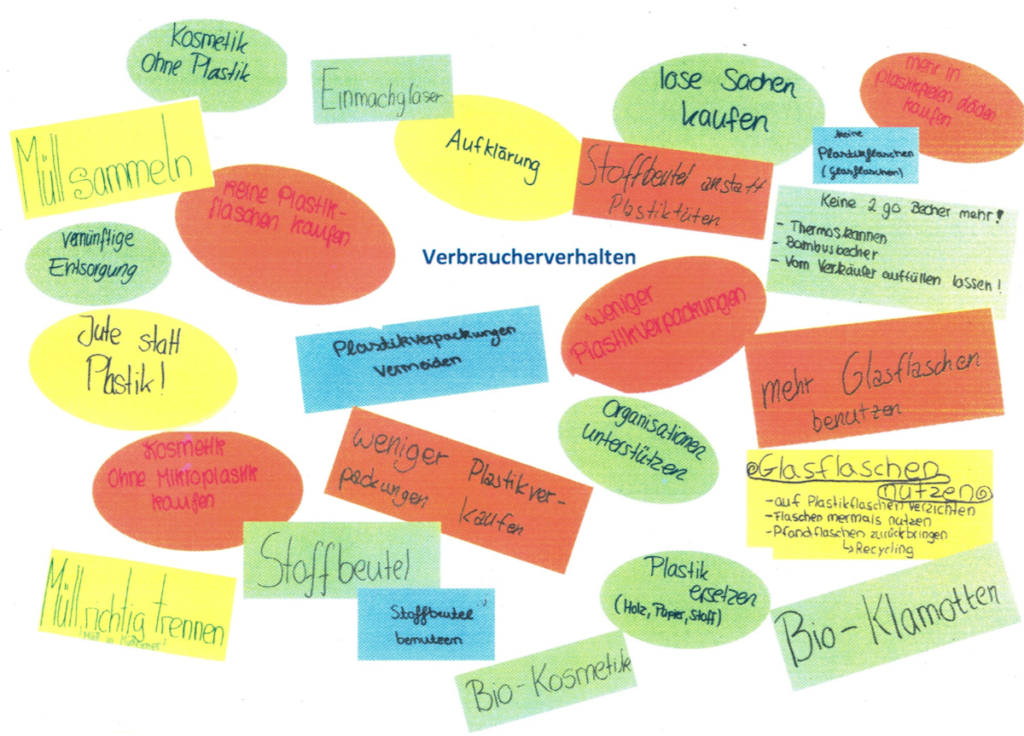 Kosmetik
ohne Plastik
Einmachgläser
lose Sachen
kaufen
mehr in
plastikfreien
kaufen
Müll sammeln
Aufklärung
keine
Plastikflaschen
(Glasflaschen)
Stoffbeutel anstatt
Plastiktüten
keine Plastik-
flaschen kaufen
Keine 2 go Becher mehr!
- Thermoskannen
- Bambusbecher
- Vom Verkäufer auffüllen lassen!
vernünftige
Entsorgung
Verbraucherverhalten
Jute statt
Plastik!
Plastikverpackungen
vermeiden
weniger
Plastikverpackungen
mehr Glasflaschen
benutzen
Kosmetik
ohne Mikroplastik
kaufen
weniger Plastikver-
packungen kaufen
Organisationen
unterstützen
Glasflaschen
nutzen
- auf Plastikflaschen verzichten
- Flaschen mermals nutzen
- Pfandflaschen zurückbringen
↳ Recycling
Stoffbeutel
Müll richtig trennen
Stoffbeutel
benutzen
Plastik
ersetzen
(Holz, Papier, Stoff)
Bio-Klamotten
Bio-Kosmetik